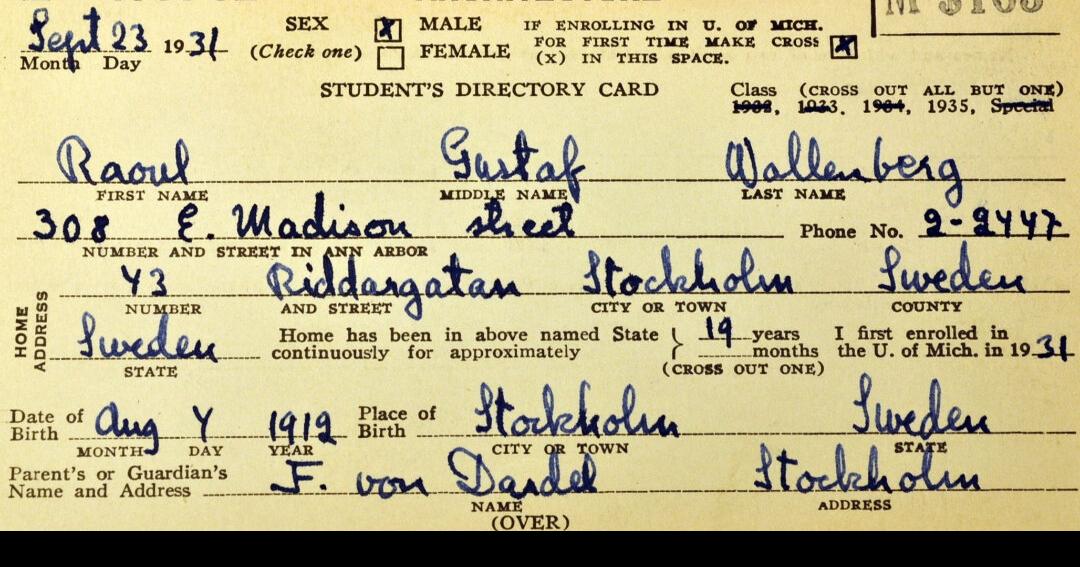 M 3103
Sept 23 1931
Month Day
SEX
(Check one)
MALE
FEMALE
IF ENROLLING IN U. OF MICH.
FOR FIRST TIME MAKE CROSS
(X) IN THIS SPACE.
STUDENT'S DIRECTORY CARD
Class (CROSS OUT ALL BUT ONE)
1932, 1933, 1934, 1935, Special
Raoul Gustaf Wallenberg
FIRST NAME MIDDLE NAME LAST NAME
308 E. Madison street Phone No. 2-2447
NUMBER AND STREET IN ANN ARBOR
HOME ADDRESS
43 Riddargatan Stockholm Sweden
NUMBER AND STREET CITY OR TOWN COUNTY
Sweden
STATE
Home has been in above named State
continuously for approximately
19 years
months
(CROSS OUT ONE)
I first enrolled in
the U. of Mich. in 1931
Date of Birth Aug 4 1912 Place of Birth Stockholm Sweden
MONTH DAY YEAR CITY OR TOWN STATE
Parent's or Guardian's
Name and Address F. von Dardel Stockholm
NAME ADDRESS
(OVER)